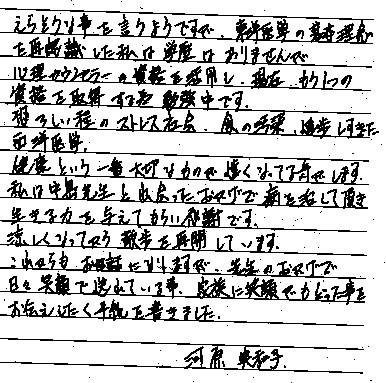 えらそうな事を言うようですが、東洋医学の基本理念
を再認識した私は学歴はありませんが
心理カウンセラーの資格を活用し、現在、もう1つの
資格を取得する為 勉強中です。
恐ろしい程のストレス社会、食の欧米、進歩しすぎた
西洋医学。
健康という一番大切なものが遠くなってる気がします。
私は中島先生と出会ったおかげで病を治して頂き
生きる力を与えてもらい感謝です。
涼しくなってから散歩を再開しています。
これからもお世話になりますが、先生のおかげで
日々笑顔で送れている事、家族に笑顔でもどった事を
お伝えしたく手紙を書きました。
河原